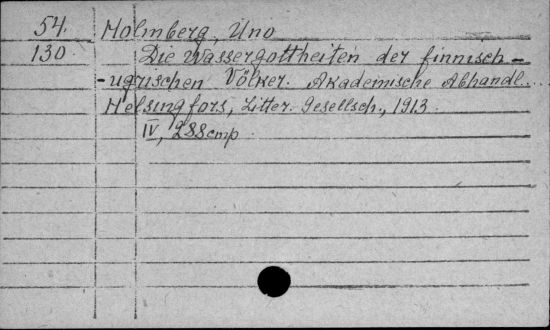 54. Holmberg, Uno
130. Die Wassergottheiten der finnisch-
-ugrischen Völker. Akademische Abhandl.
Helsingfors, Litter. Gesellsch., 1913.
IV, 288 стр.